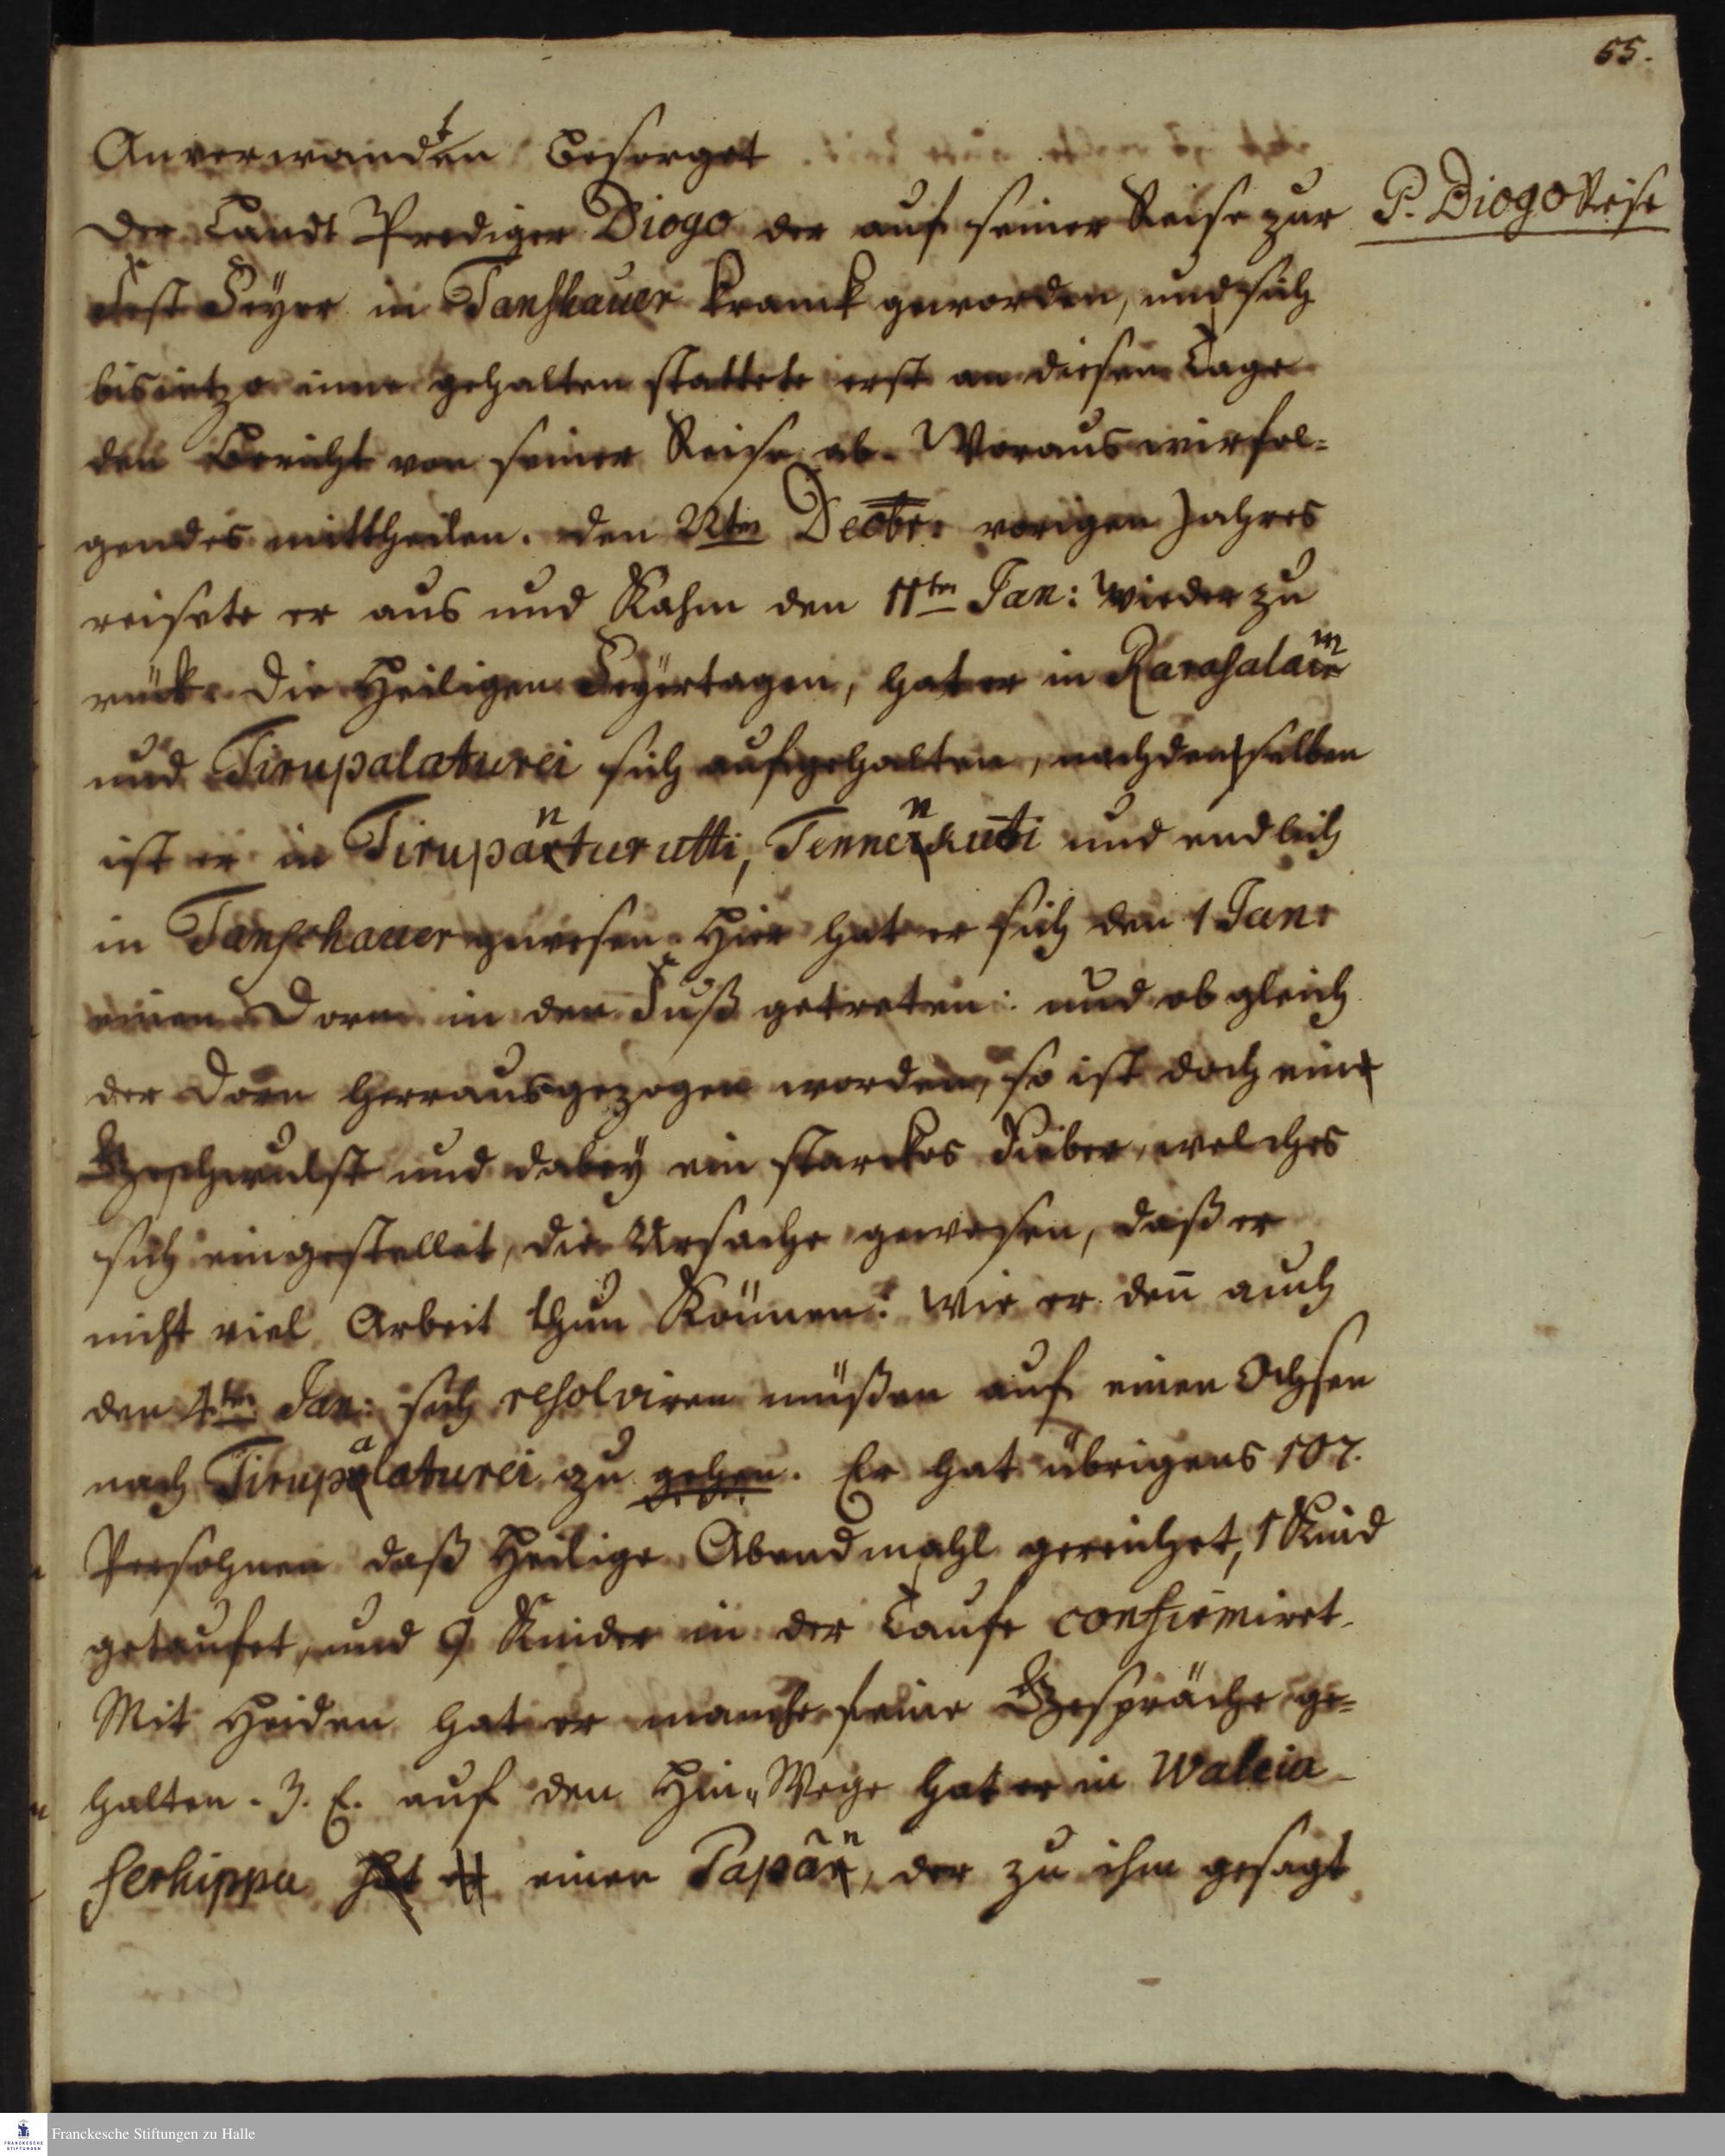 55.
Anverwandten besorget.
Der Landt Prediger Diogo der auf seiner Reise zur
P. Diogo Reise
Fest Feyer in Tanshauer kranck geworden, und sich
bis ietzo inne gehalten stattete erst an diesen Tage
den Bericht von seiner Reise ab. Woraus wir fol-
gendes mittheilen. Den 22ten Decbr: vorigen Jahres
reisete er aus und Kahm den 11ten Jan: wieder zu
rück. Die Heiligen Feyertagen, hat er in Rarasalam
und Tirupalaturei sich aufgehalten, nach denselben
ist er in Tirupanturutti, Tennenkuti und endlich
in Tanschauer gewesen. Hier hat er sich den 1 Jan:
einen Dorn in den Fuß getreten: und ob gleich
der Dorn herrausgezogen worden, so ist doch eine
Geschwulst und dabey ein starckes Fieber, welches
sich eingestellet, die Ursache gewesen, daß er
nicht viel Arbeit thun Können: wie er deñ auch
den 4ten Jan: sich resolviren müßen auf einen Ochsen
nach Tirupalaturei zu gehen. Er hat übrigens 107.
Persohnen daß Heilige Abendmahl gereichet, 1 Kind
getaufet, und 9 Kinder in der Taufe confirmiret.
Mit Heiden hat er manche feine Gespräche ge-
halten. Z. E. auf den Hin-Wege hat er in Waleia-
serhippu hat er einen Papän, der zu ihm gesagt
Franckesche Stiftungen zu Halle